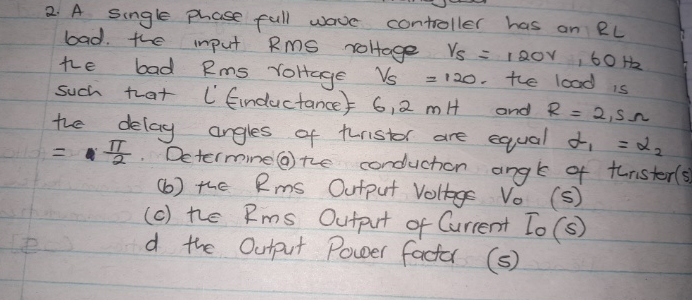 2. A single phase full wave controller has an RL
bad. the input RMS voltage Vs = 120V, 60 Hz
the bad Rms voltage Vs = 120. the load is
such that L (inductance) = 6,2 mH and R = 2,5Ω
the delay angles of turistor are equal α1 = α2
= π/2. Determine (a) the conduction angle of thrister (s
(b) the Rms Output Voltage Vo (s)
(c) the Rms Output of Current Io (s)
d the Output Power factor (s)